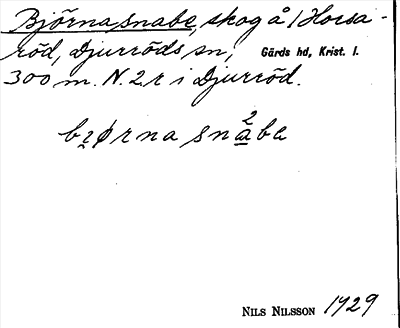 Björnasnabe, skog å 1 Horsa-
röd, Djurröds sn, Gärds hd, Krist. l.
300 m. N. 2 r i Djurröd.
2
bɪørna snabe
NILS NILSSON 1929